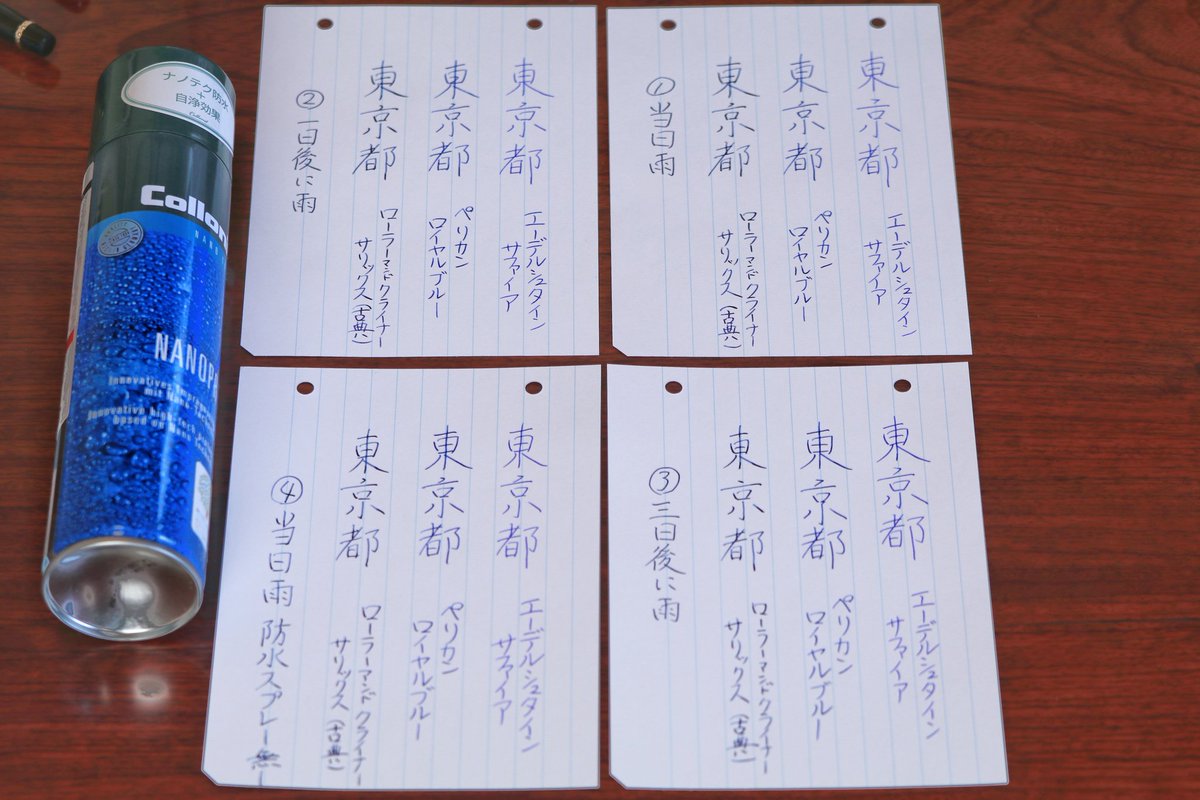 ナノテク防水
+
自浄効果
Collonil
Collon
NANO
NANOP
Innovatives
mit Nano-Tec
Innovative high-tech
based on Nano
① 当日雨
東京都
エーデルシュタイン
サファイア
東京都
ペリカン
ロイヤルブルー
東京都
ローラーマンドクライナー
サリックス(古典)
② 一日後に雨
東京都
エーデルシュタイン
サファイア
東京都
ペリカン
ロイヤルブルー
東京都
ローラーマンドクライナー
サリックス(古典)
③ 三日後に雨
東京都
エーデルシュタイン
サファイア
東京都
ペリカン
ロイヤルブルー
東京都
ローラーマンドクライナー
サリックス(古典)
④ 当日雨 防水スプレー無
東京都
エーデルシュタイン
サファイア
東京都
ペリカン
ロイヤルブルー
東京都
ローラーマンドクライナー
サリックス(古典)